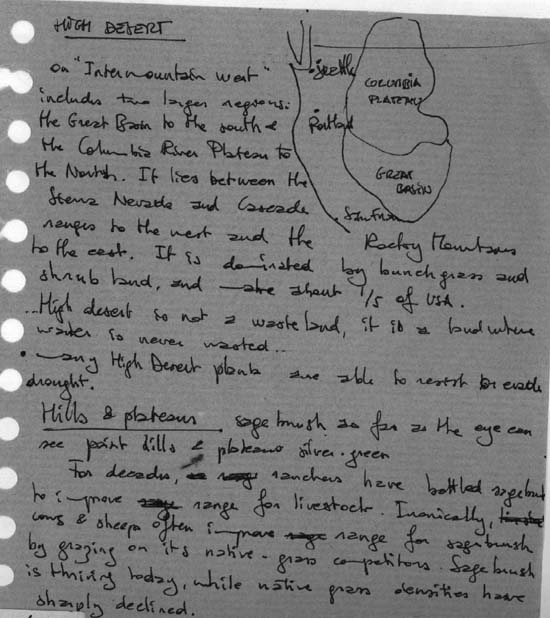 HIGH DESERT
or "Intermountain west"
includes two larger regions:
the Great Basin to the south &
the Columbia River Plateau to
the North. It lies between the
Sierra Nevada and Cascade
ranges to the west and the Rocky Mountains
to the east. It is dominated by bunchgrass and
shrub land, and about 1/5 of USA.
...High desert is not a wasteland, it is a land where
water is never wasted...
• many High Desert plants are able to resist or evade
drought.
Hills & plateaus. sagebrush as far as the eye can
see paint hills & plateaus silver-green
For decades, ranchers have battled sagebrush
to improve range for livestock. Ironically,
cows & sheep often improve range for sagebrush
by grazing on its native-grass competitors. Sagebrush
is thriving today, while native grass densities have
sharply declined.
Seattle
COLUMBIA
PLATEAU
Portland
GREAT
BASIN